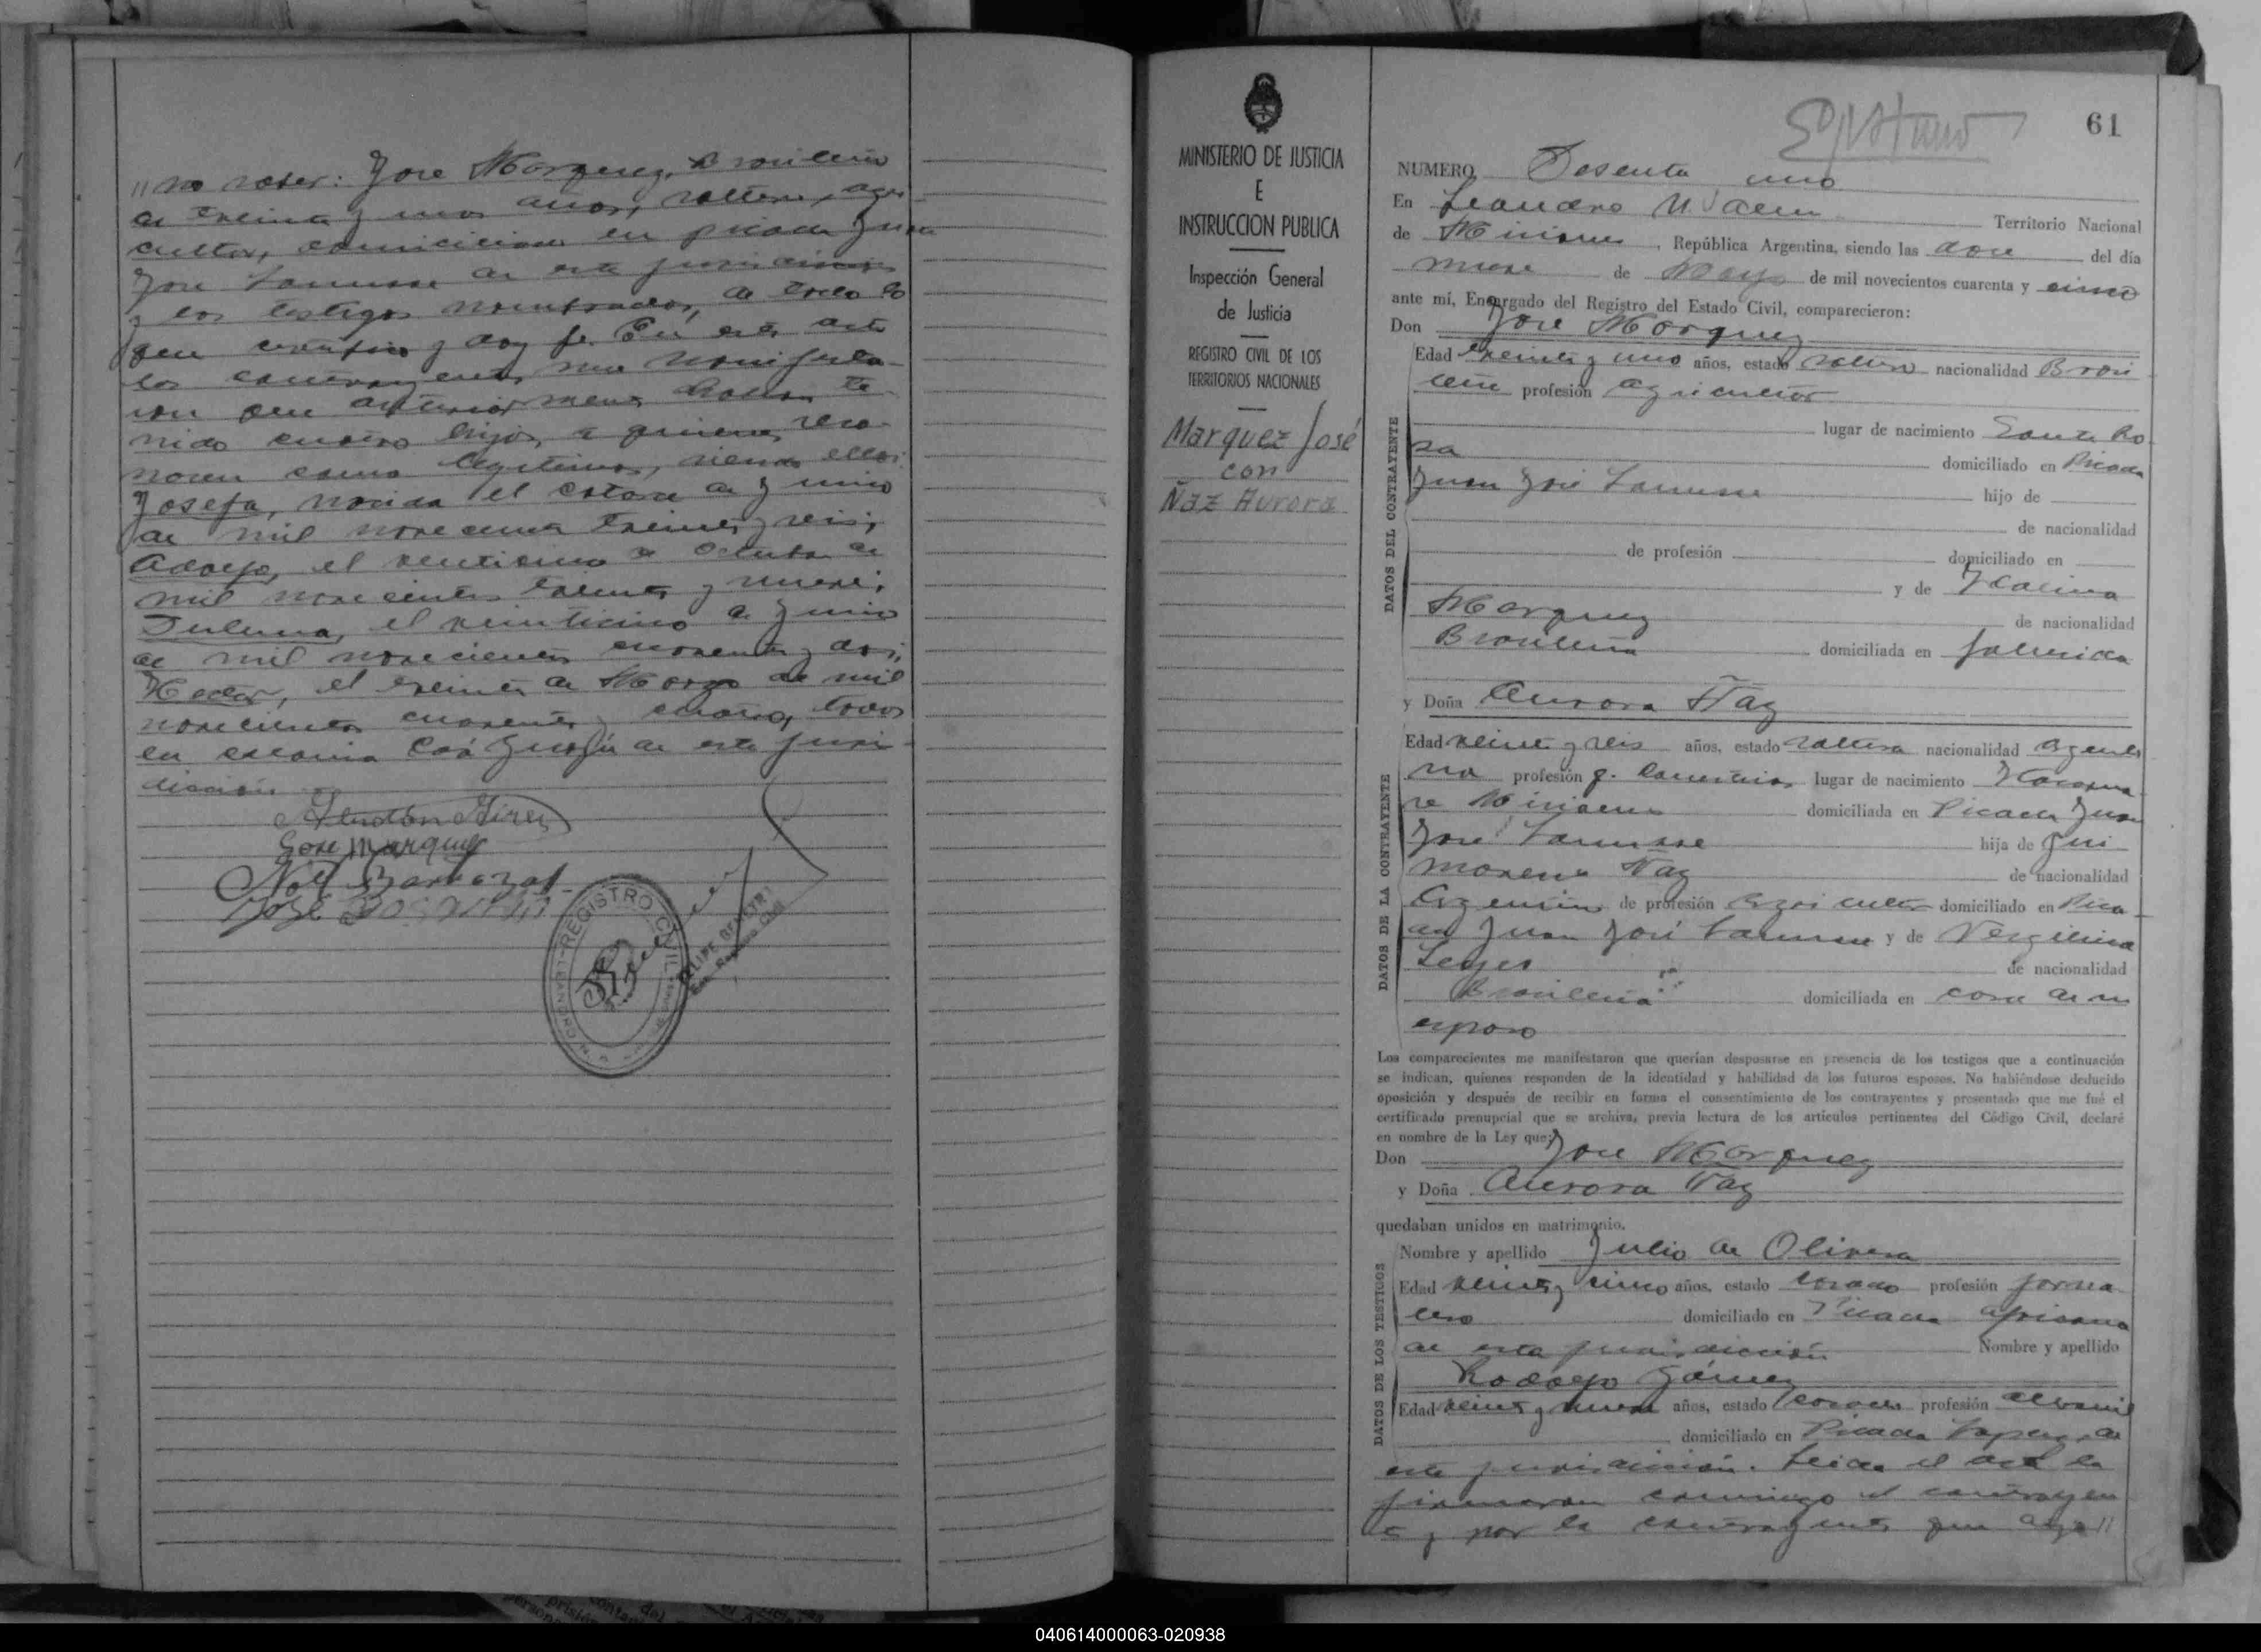 // no saber: Jose Marquez, Brasileño
de treinta y uno años, soltero, agri
cultor, domiciliado en picada Juan
Jose Lanusse de esta jurisdiccion
y los testigos nombrados, de todo lo
que certifico y doy fe. En este acto
los contrayentes me manifesta-
ron que anteriormente habian te-
nido cuatro hijos, a quienes reco-
nocen como legitimos, siendo ellos:
Josefa, nacida el catorce de Junio
de mil novecientos treinta y seis;
Adolfo, el de Octubre de
mil novecientos treinta y nueve;
el veinticinco de Junio
de mil novecientos cuarenta y dos;
Hector, el treinta de Marzo de mil
novecientos cuarenta y cuatro, todos
en colonia Caá Guazú de esta juris-
diccion
Jose Marquez
REGISTRO CIVIL
FELIPE
Enc. Registro Civil
MINISTERIO DE JUSTICIA
E
INSTRUCCION PUBLICA
Inspección General
de Justicia
REGISTRO CIVIL DE LOS
TERRITORIOS NACIONALES
Marquez José
con
Ñaz Aurora
61
NUMERO Sesenta uno
En Leandro N. Alem Territorio Nacional
de Misiones, República Argentina, siendo las doce del día
nueve de Mayo de mil novecientos cuarenta y cinco
ante mí, Encargado del Registro del Estado Civil, comparecieron:
Don Jose Marquez
DATOS DEL CONTRAYENTE
Edad treinta y uno años, estado soltero nacionalidad Brasi
leño profesión agricultor
lugar de nacimiento Santa Ro
sa domiciliado en Picada
Juan José Lanusse hijo de
de nacionalidad
de profesión domiciliado en
y de
Marquez de nacionalidad
Brasileña domiciliada en fallecida
y Doña Aurora Ñaz
DATOS DE LA CONTRAYENTE
Edad veinte y seis años, estado soltera nacionalidad argenti
na profesión q. domesticos lugar de nacimiento
Misiones domiciliada en Picada Juan
Jose Lanusse hija de Gui
Ñaz de nacionalidad
Argentino de profesión Agricultor domiciliado en Pica
da Juan José Lanusse y de
de nacionalidad
Brasileña domiciliada en casa de su
esposo
Los comparecientes me manifestaron que querían desposarse en presencia de los testigos que a continuación
se indican, quienes responden de la identidad y habilidad de los futuros esposos. No habiéndose deducido
oposición y después de recibir en forma el consentimiento de los contrayentes y presentado que me fué el
certificado prenupcial que se archiva, previa lectura de los artículos pertinentes del Código Civil, declaré
en nombre de la Ley que:
Don Jose Marquez
y Doña Aurora Ñaz
quedaban unidos en matrimonio.
DATOS DE LOS TESTIGOS
Nombre y apellido Julio de Olivera
Edad veinte y cinco años, estado casado profesión jorna
lero domiciliado en Picada
de esta jurisdicción Nombre y apellido
Rodolfo Gómez
Edad veinte y nueve años, estado casado profesión albañil
domiciliado en Picada de
esta jurisdicción. Leida el acta la
firmaron conmigo el contrayen
te y por la contrayente que dijo //
040614000063-020938